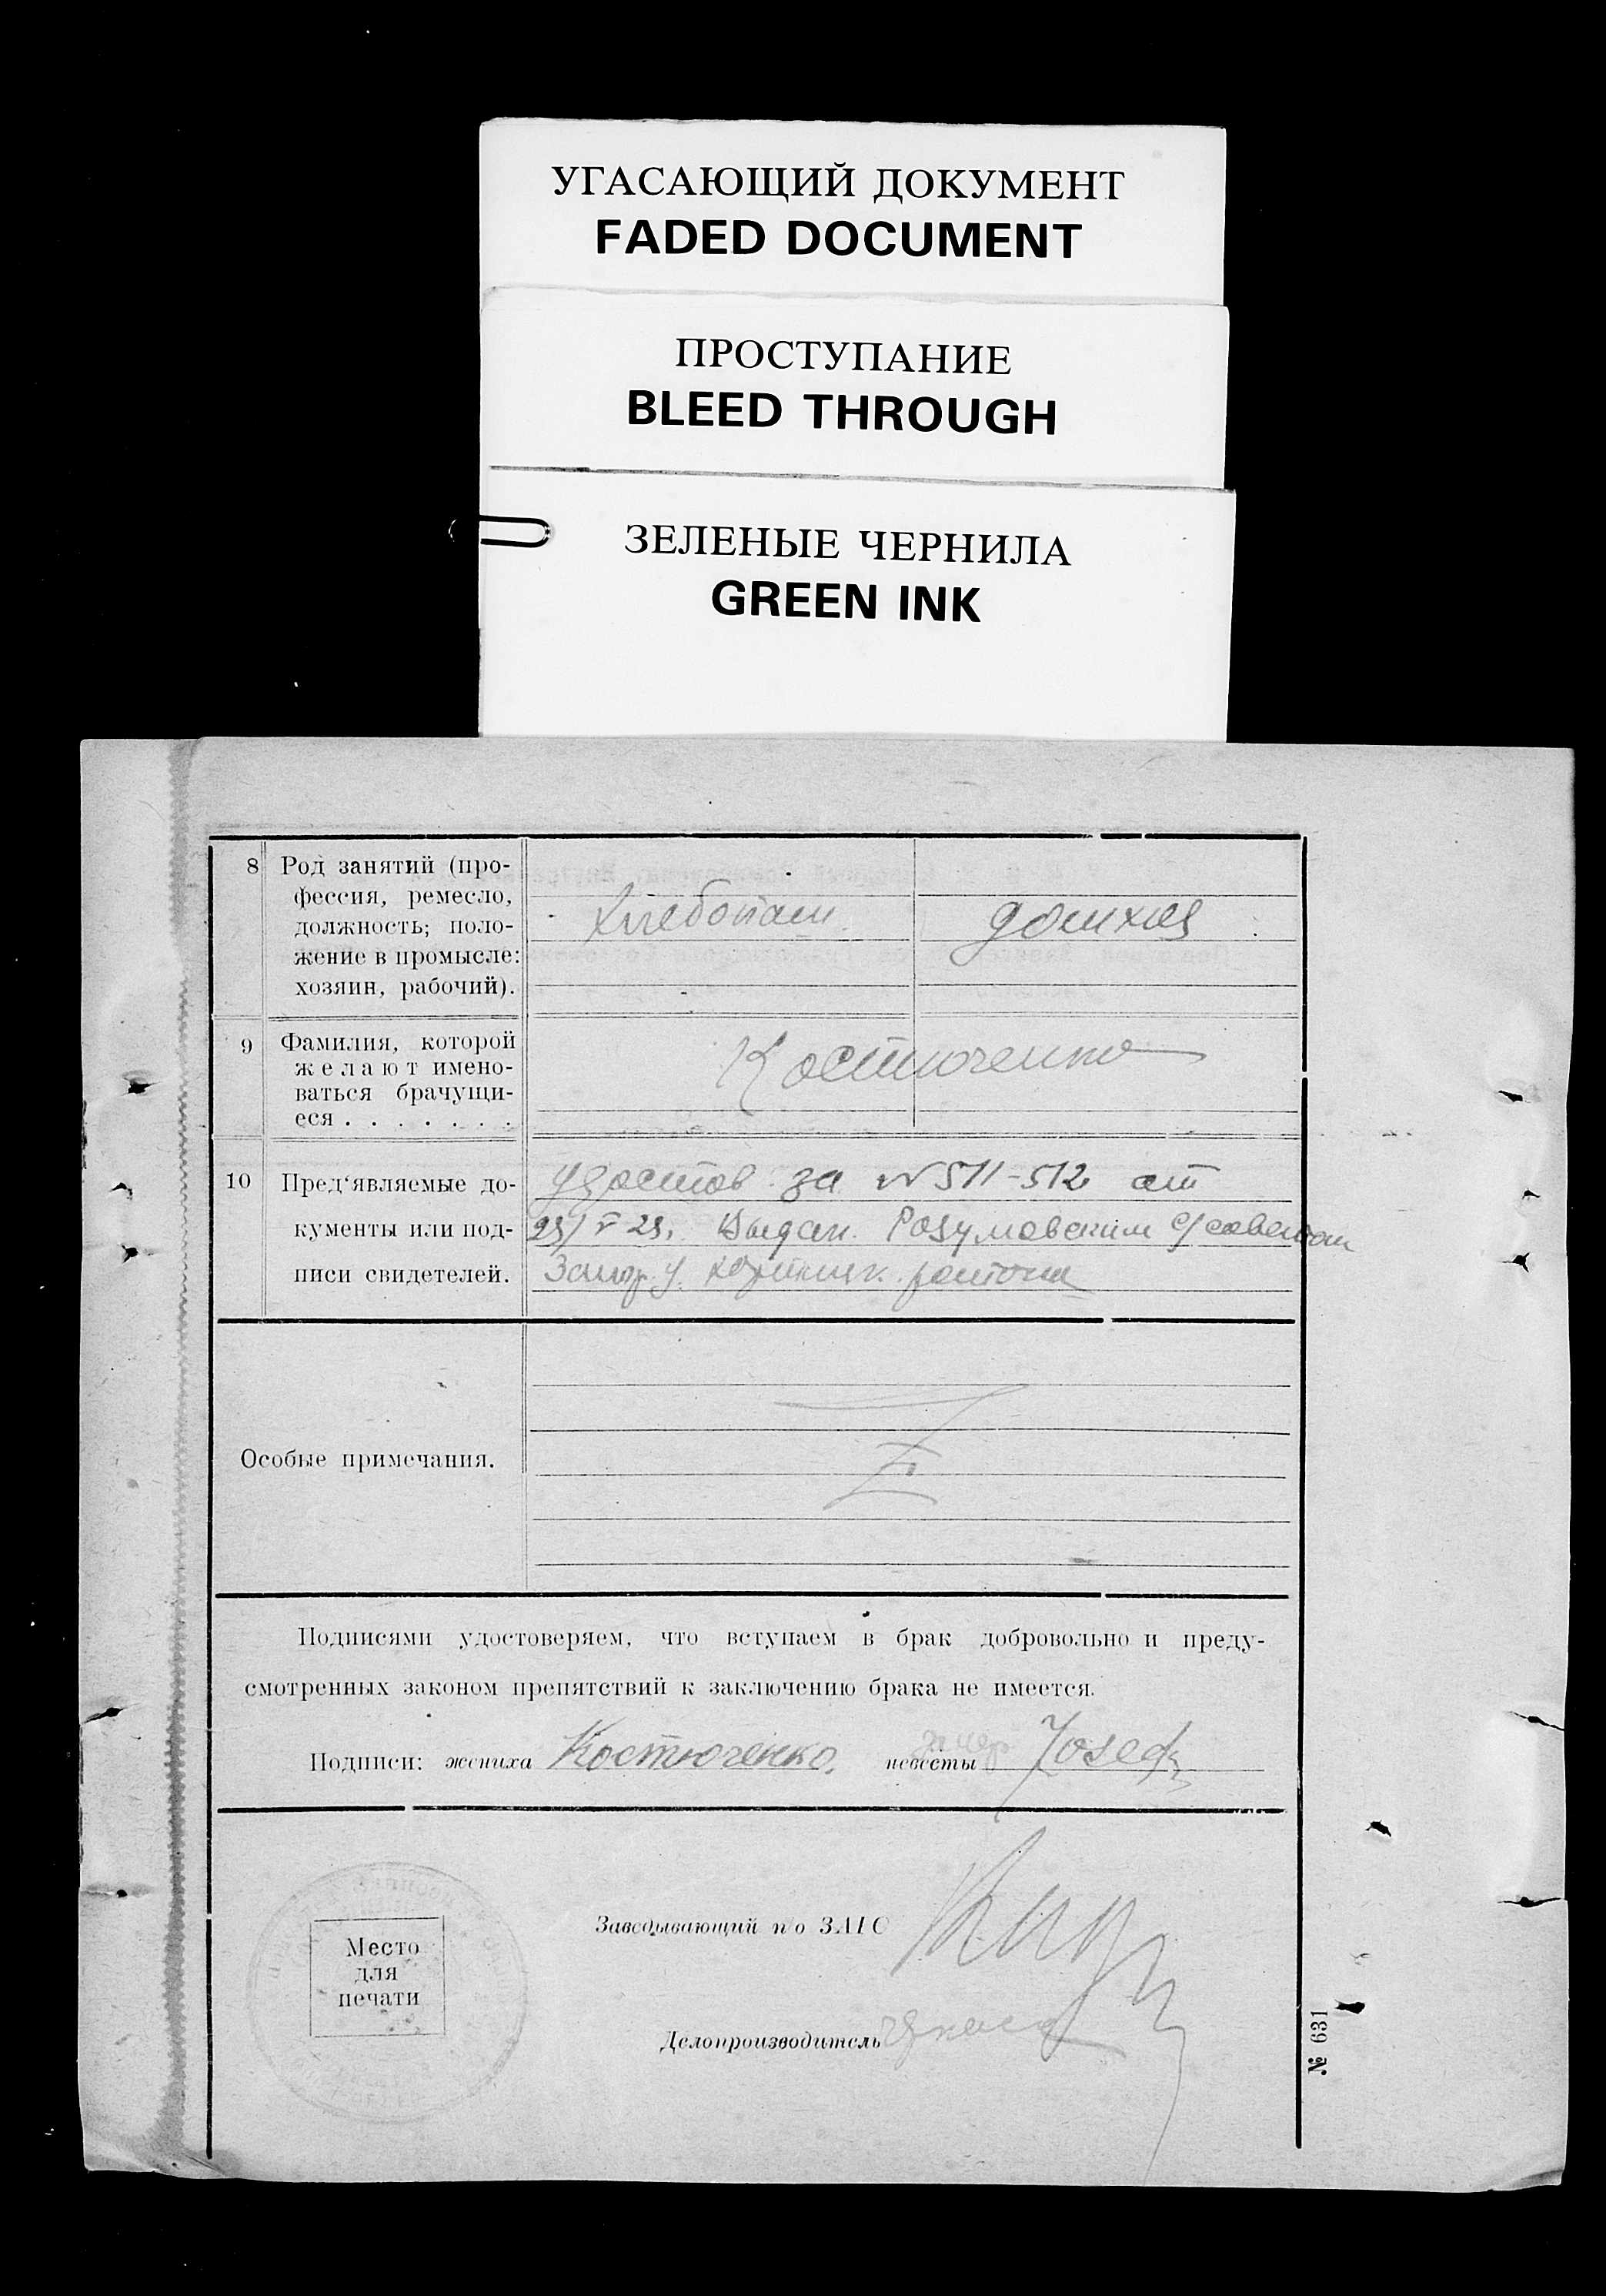 УГАСАЮЩИЙ ДОКУМЕНТ
FADED DOCUMENT
ПРОСТУПАНИЕ
BLEED THROUGH
ЗЕЛЕНЫЕ ЧЕРНИЛА
GREEN INK
8 Род занятий (про-
фессия, ремесло,
должность; поло-
жение в промысле:
хозяин, рабочий).
9 Фамилия, которой
желают имено-
ваться брачущи-
еся . . . . . . .
Костюченко
10 Пред‘являемые до-
кументы или под-
писи свидетелей.
удостов. за № 511-512 от
Выдан. Розумовским с/советом
Особые примечания.
Подписями удостоверяем, что вступаем в брак добровольно и преду-
смотренных законом препятствий к заключению брака не имеется.
Подписи: жениха Костюченко. невесты
Заведывающий по ЗАГС
Место
для
печати
Делопроизводитель
№ 631